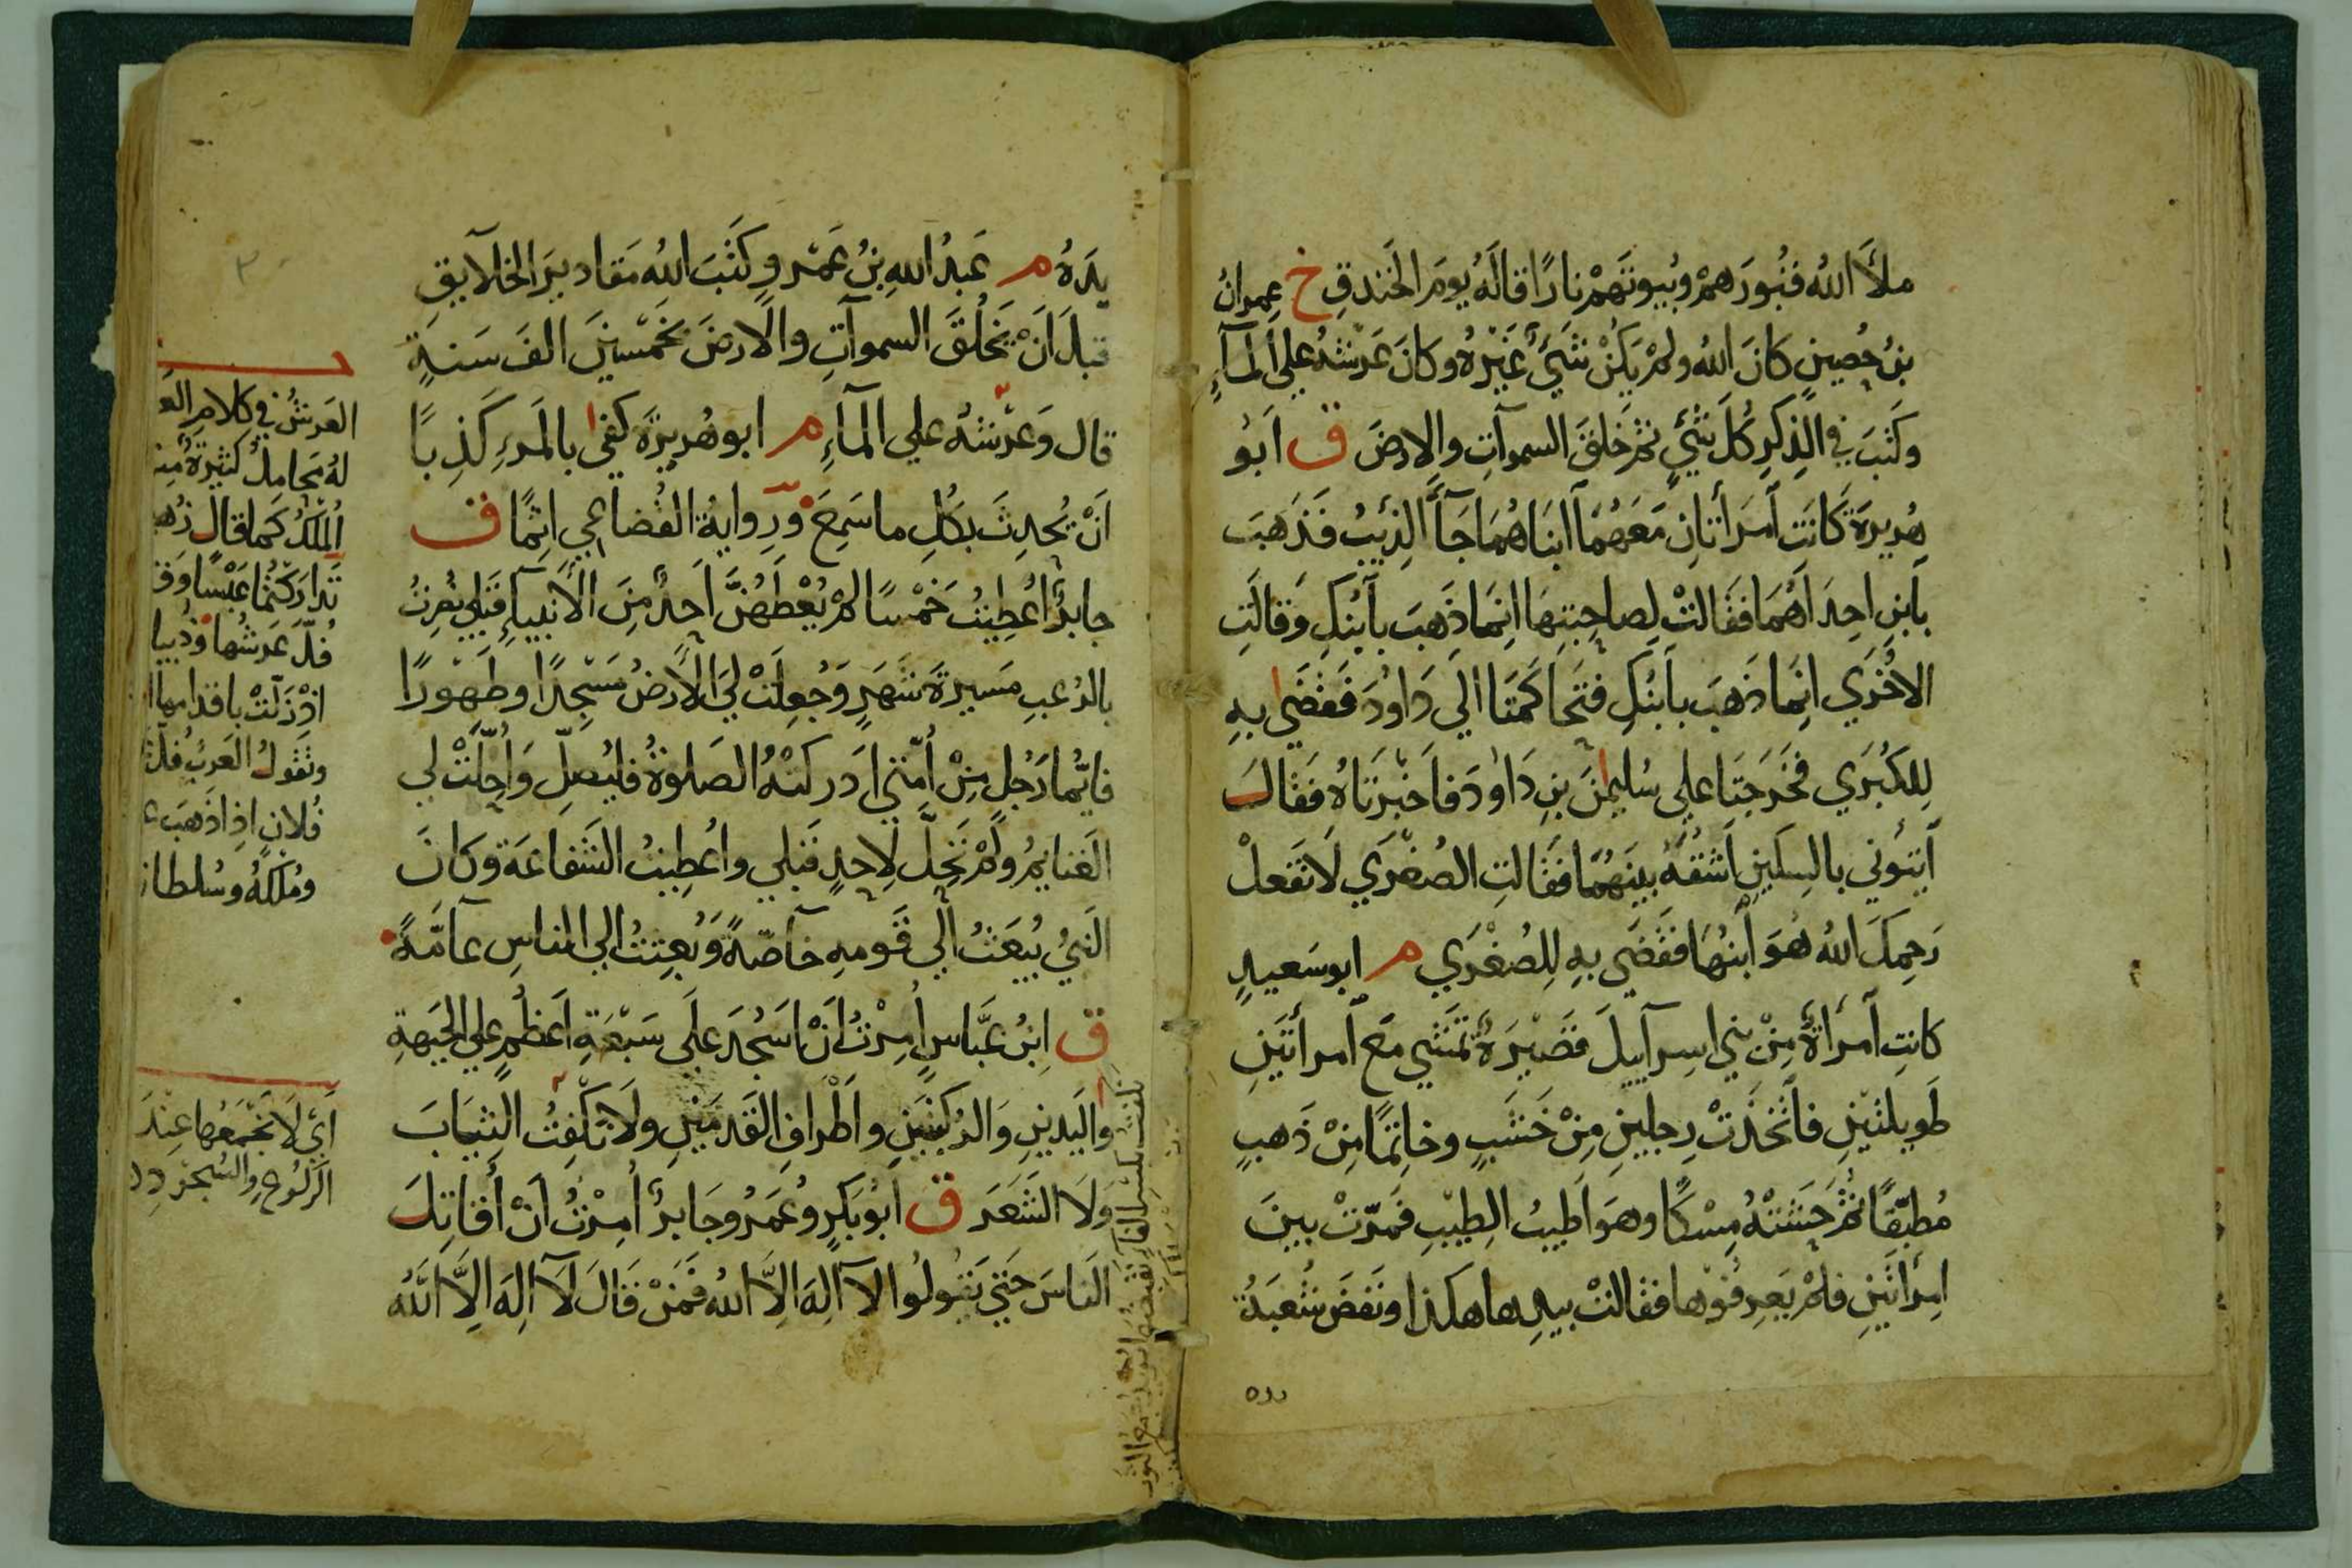 ملأ الله قبورهم وبيوتهم نارا قاله يوم الخندق خ عمران
بن حصين كان الله ولم يكن شيء غيره وكان عرشه علي الماء
وكتب في الذكر كل شيء ثم خلق السموات والارض ق ابو
هريرة كانت امرأتان معهما ابناهما جاء الذئب فذهب
بابن احداهما فقالت لصاحبتها انما ذهب بابنك وقالت
الاخري انما ذهب بابنك فتحاكمتا الي داود فقضي به
للكبري فخرجتا علي سليمن بن داود فاخبرتاه فقال
ايتوني بالسكين اشقه بينهما فقالت الصغري لا تفعل
رحمك الله هو ابنها فقضي به للصغري م ابو سعيد
كانت امرأة من بني اسرآييل قصيرة تمشي مع امرأتين
طويلتين فاتخذت رجلين من خشب وخاتما من ذهب
مطبقا ثم حشته مسكا وهو اطيب الطيب فمرت بين
امرأتين فلم يعرفوها فقالت بيدها هكذا ونفض شعبة
يده م عبد الله بن عمرو كتب الله مقادير الخلآيق
قبل ان يخلق السموات والارض بخمسين الف سنة
قال وعرشه علي المآء م ابو هريرة كفي بالمرء كذبا
ان يحدث بكل ما سمع ورواية القضاعي اثما ق
جابر اعطيت خمسا لم يعطهن احد من الانبيآء قبلي نصرت
بالرعب مسيرة شهر وجعلت لي الارض مسجدا وطهورا
فايما رجل من امتي ادركته الصلوة فليصل واحلت لي
الغنايم ولم تحل لاحد قبلي واعطيت الشفاعة وكان
النبي يبعث الي قومه خآصة وبعثت الي الناس عآمة
ق ابن عباس امرت ان اسجد علي سبعة اعظم علي الجبهة
واليدين والركبتين واطراف القدمين ولا نكفت الثياب
ولا الشعر ق ابو بكر وعمر وجابر امرت ان اقاتل
الناس حتي يقولوا لا اله الا الله فمن قال لا اله الا الله
العرش في كلام
له محامل كثيرة
الملك كما قال
تداركتما عبسا
عرشها وذبيا
اذ زلت باقدامها
وتقول العرب
فلان اذا ذهب
وملكه وسلطا
اي لا نجمعها عند
الركوع والسجود